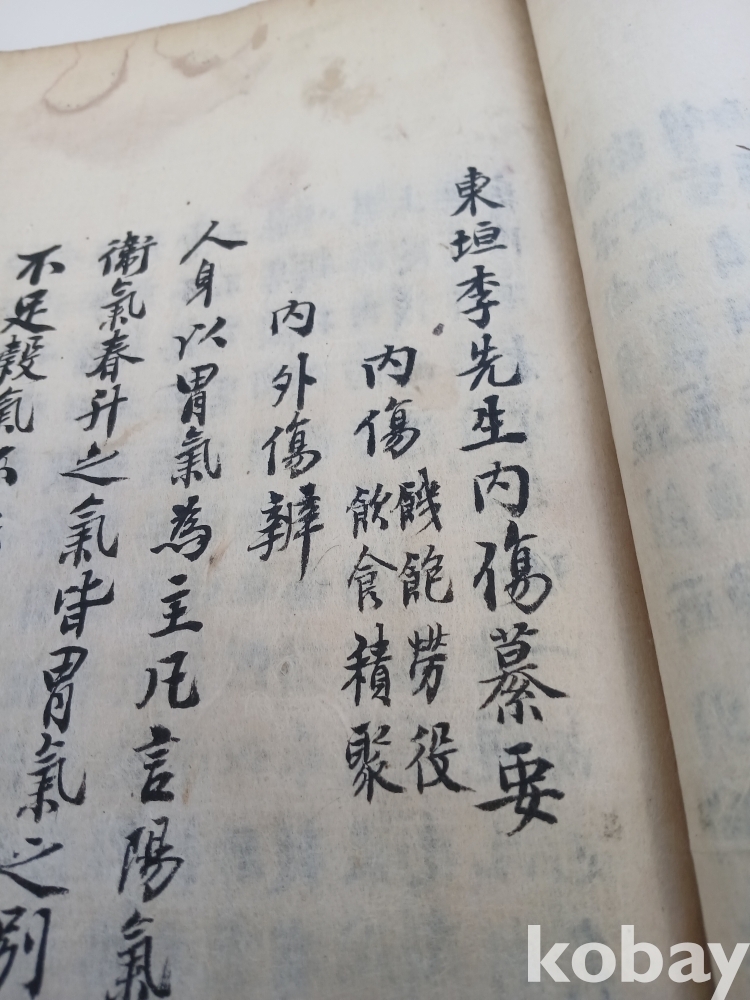 東垣李先生内傷纂要
内傷 饑飽勞役
飲食積聚
内外傷辨
人身以胃氣為主凡言陽氣
衛氣春升之氣皆胃氣之別
不足穀氣不
kobay